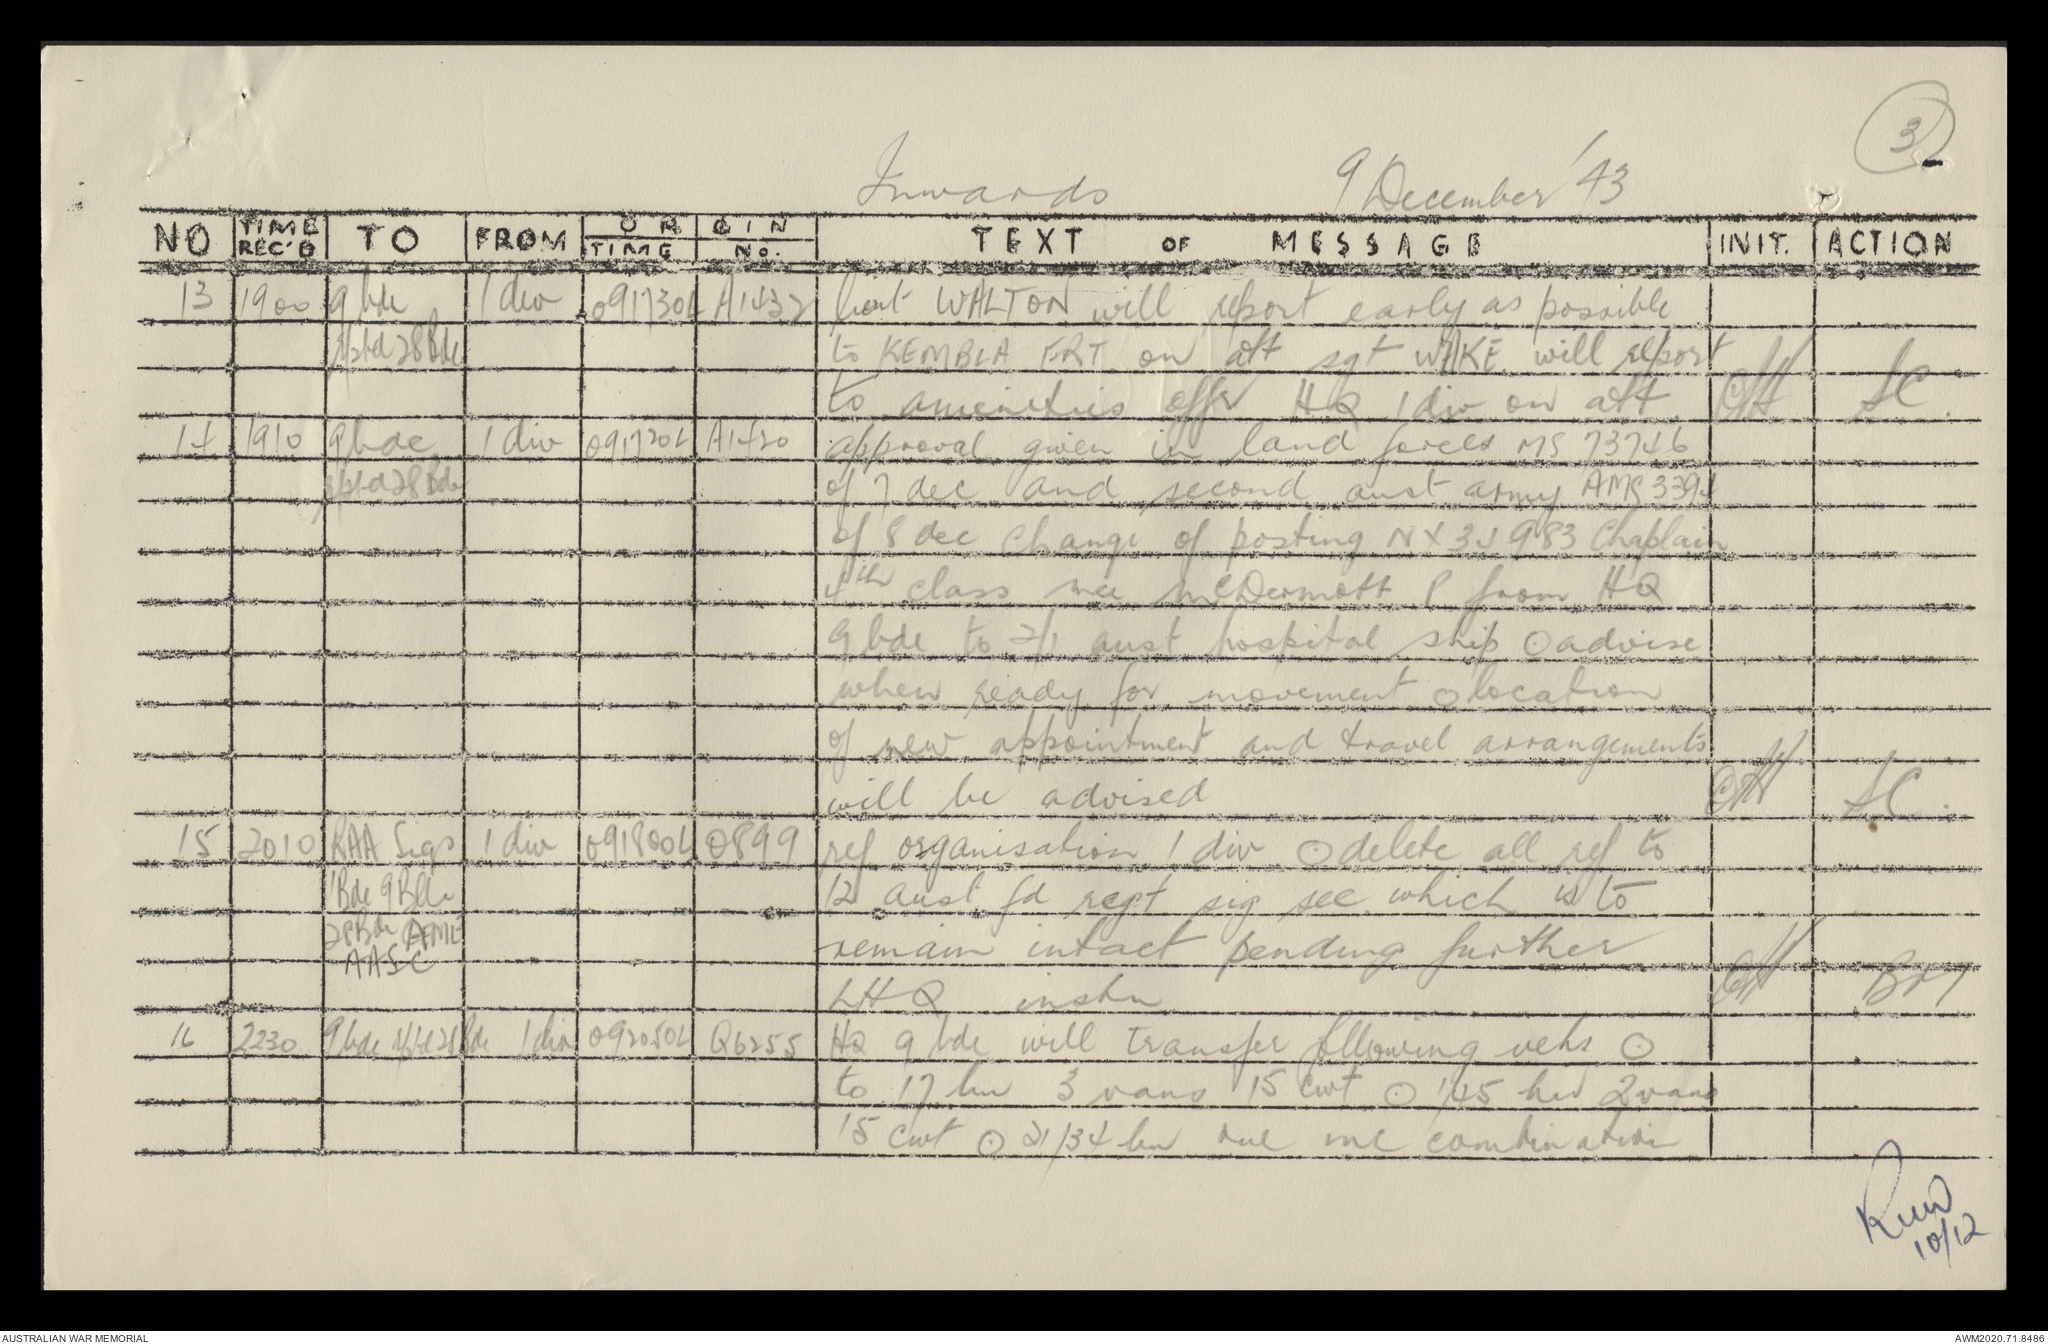 3
Inwards 9 December '43
NO TIME REC'D TO FROM ORIGIN TIME No. TEXT OF MESSAGE INIT. ACTION
13 1900 9 bde 1 div 091730L A1432 Lieut WALTON will report early as possible
rptd 28 Bde to KEMBLA FRT on att sgt WAKE will report
to amenities offr HQ 1 div on att SC.
14 1910 9 bde 1 div 091720L A1420 approval given in land forces MS 73746
rptd 28 Bde of 7 dec and second aust army AMS 3394
of 8 dec change of posting Chaplain
4th class McDermott P from HQ
9 bde to 2/1 aust hospital ship ⊙ advise
when ready for movement ⊙ location
of new appointment and travel arrangements
will be advised SC.
15 2010 RAA Sigs 1 div 091800L O899 ref organisation 1 div ⊙ delete all ref to
1 Bde 9 Bde 12 aust fd regt sig sec which is to
28 Bde AEME remain intact pending further
AASC
LHQ instn BM
16 2230 9 bde rptd 28 Bde 1 div 092050L Q6255 HQ 9 bde will transfer following vehs ⊙
to 17 bn 3 vans 15 cwt ⊙ 1/45 bn 2 vans
15 cwt ⊙ 2/34 bn one combination
10/12